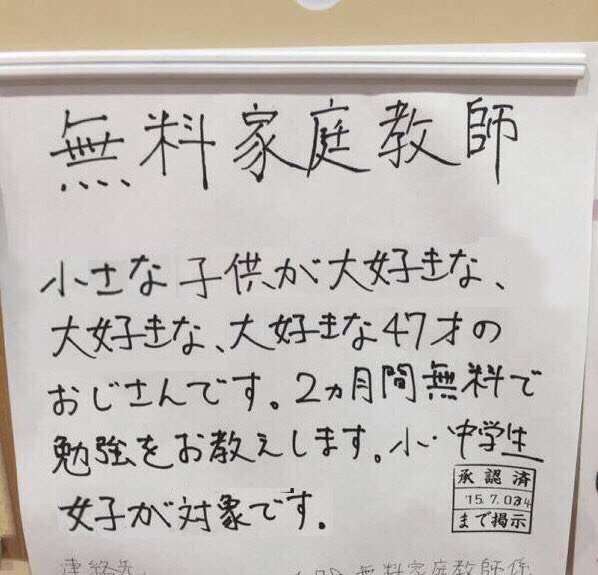 無料家庭教師
小さな子供が大好きな、
大好きな、大好きな47才の
おじさんです。2ヵ月間無料で
勉強をお教えします。小・中学生
女子が対象です。
承認済
'15.7.034
まで掲示
連絡先
無料家庭教師係